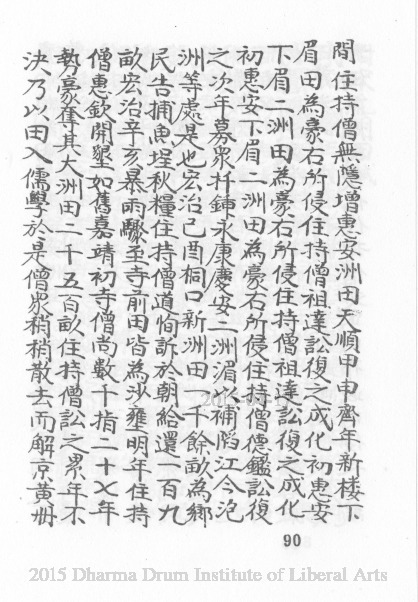 間住持僧無隱增惠安洲田天順甲申齊年新棲下
眉田為豪右所侵住持僧祖達訟復之成化初惠安
下眉二洲田為豪右所侵住持僧祖達訟復之成化
初惠安下眉二洲田為豪右所侵住持僧德鑑訟復
之次年募衆扦鍾永康慶安二洲湄以補陷江今泡
洲等處是也宏治己酉桐口新洲田一千餘畝為鄉
民告捕魚埕秋糧住持僧道恂訴於朝給還一百九
畝宏治辛亥暴雨驟至寺前田皆為沙壅明年住持
僧惠欽開墾如舊嘉靖初寺僧尚數千指二十七年
勢豪奪其大洲田二千五百畝住持僧訟之累年不
決乃以田入儒學於是僧衆稍稍散去而解京黃冊
90
2015 Dharma Drum Institute of Liberal Arts